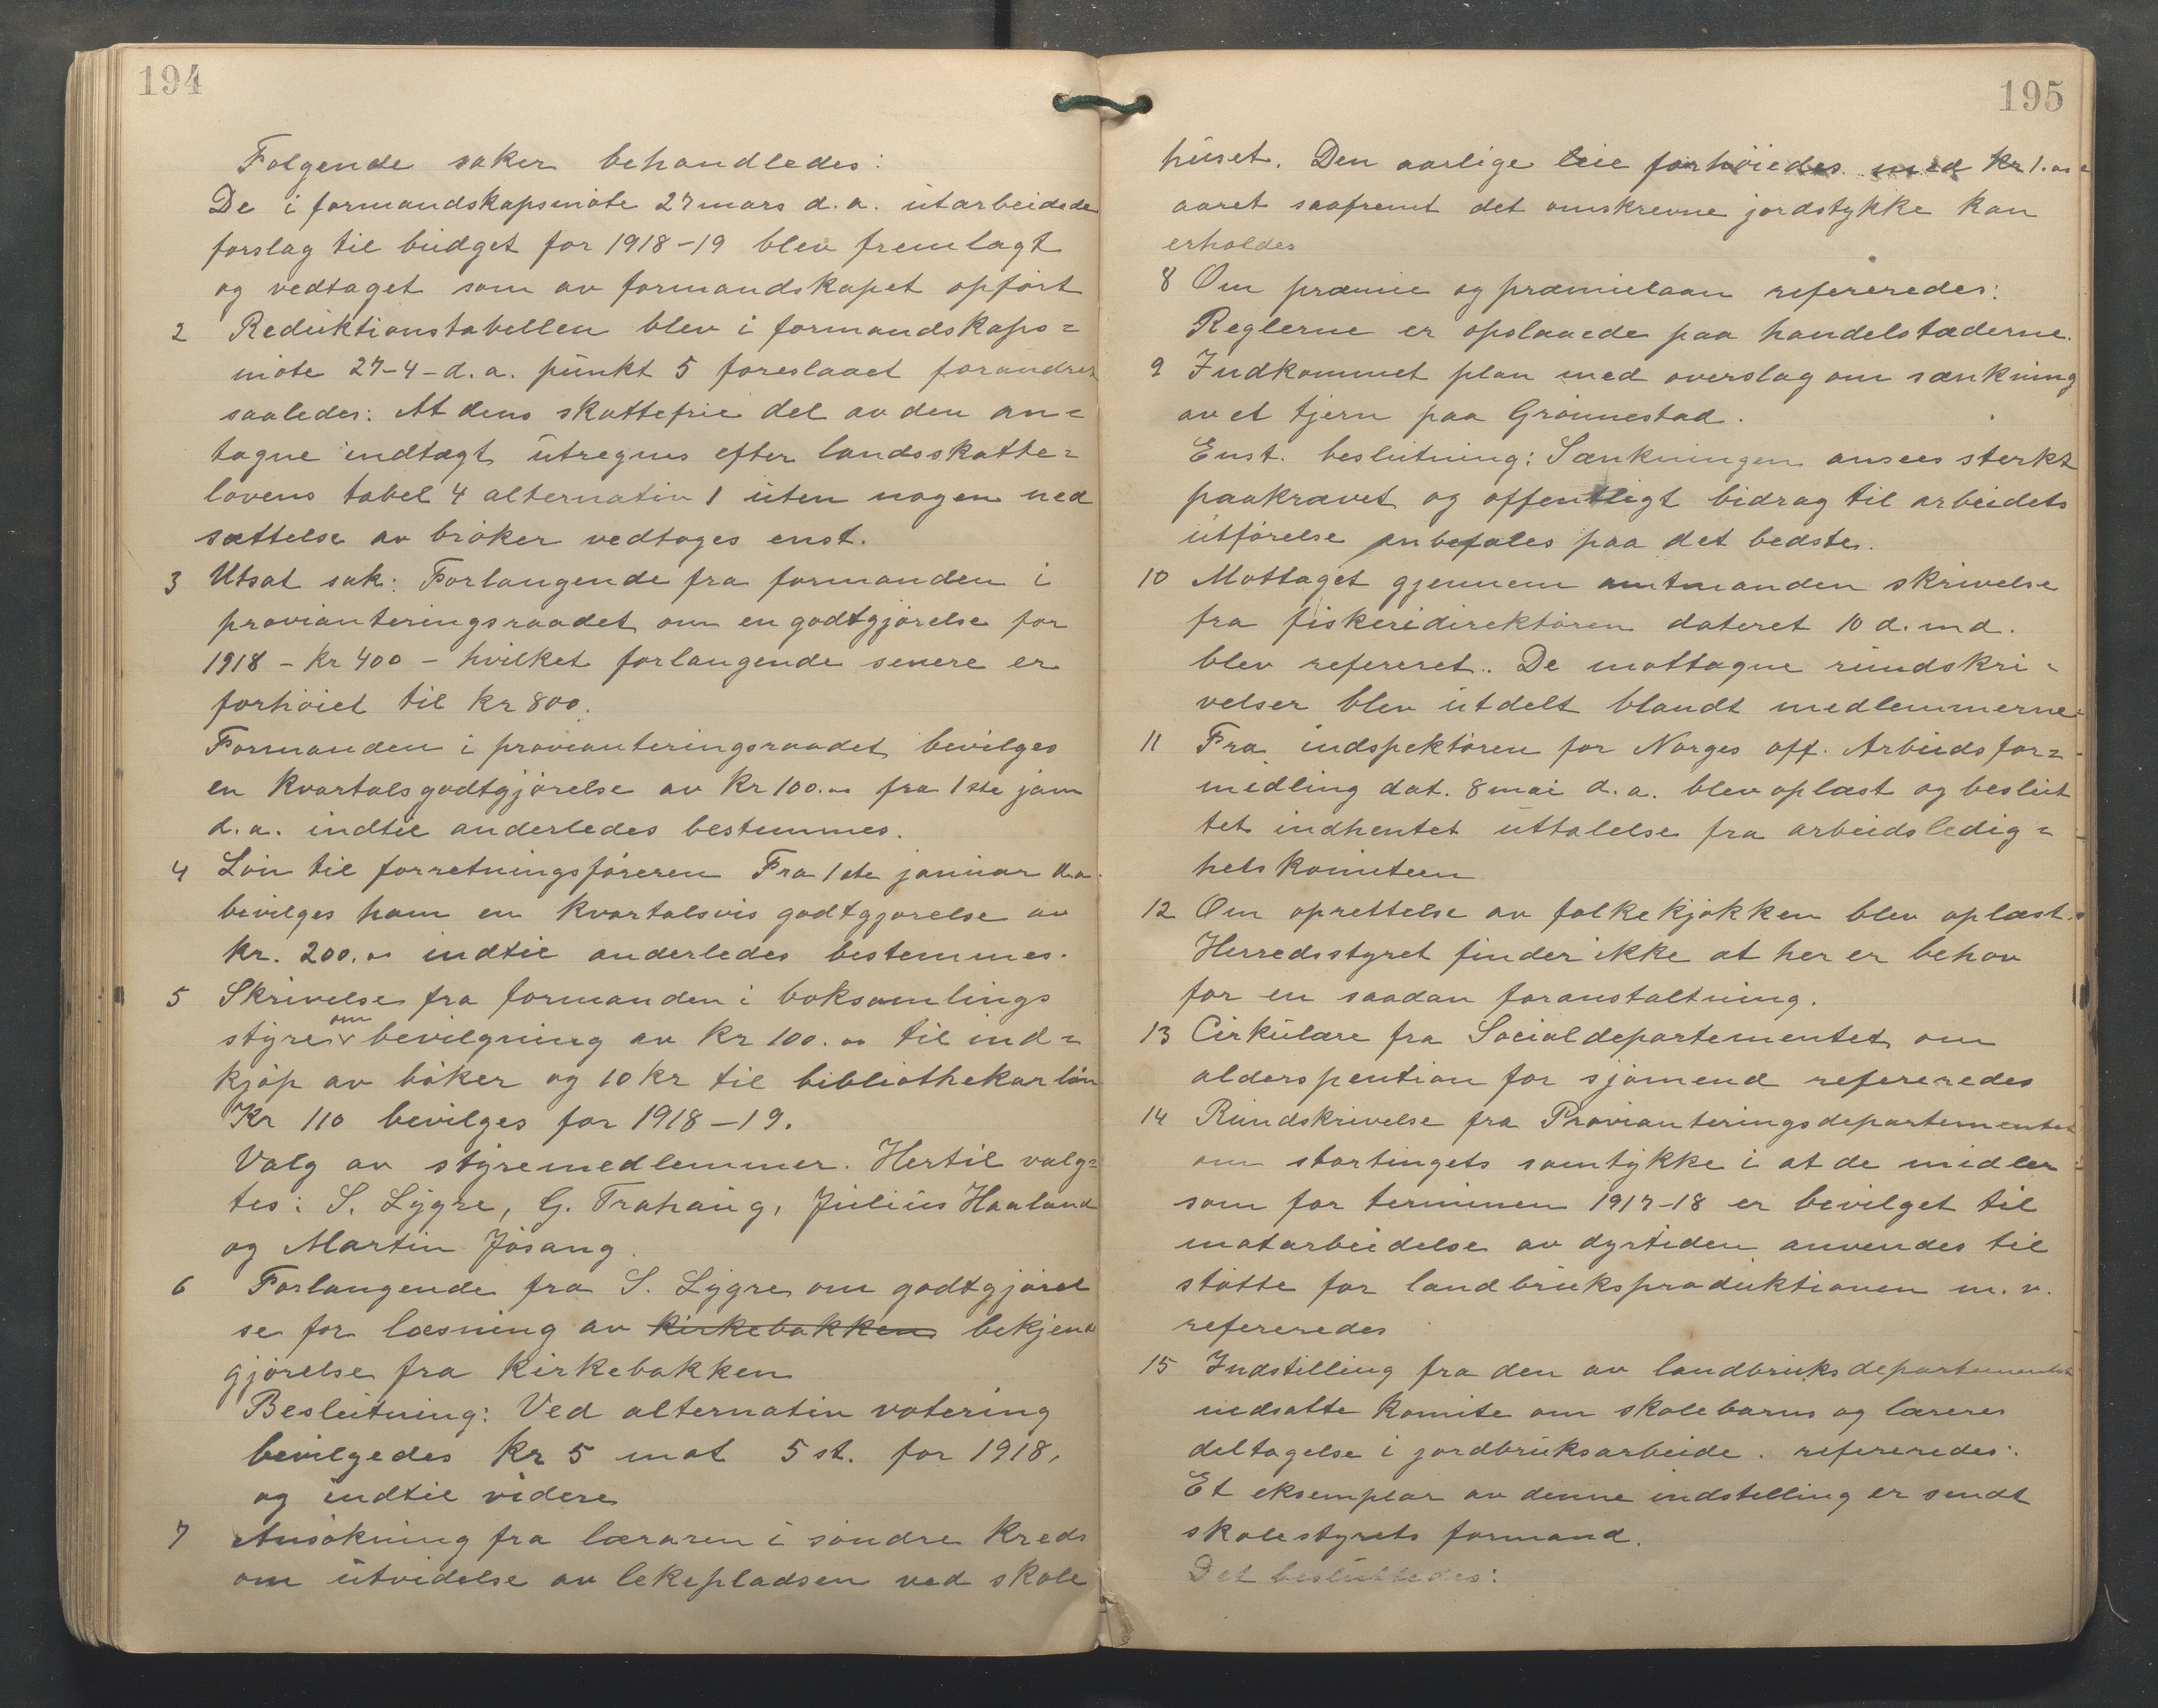 194
Følgende saker behandledes:
De i formandskapsmøte 27 mars d.a. utarbeidede
forslag til budget for 1918-19 blev fremlagt
og vedtaget som av formandskapet opført
2 Reduktionstabellen blev i formandskaps=
møte 27-4-d.a. punkt 5 foreslaaet forandret
saaledes: At dens skattefrie del av den an=
tagne indtægt utregnes efter landsskatte=
lovens tabel 4 alternativ 1 uten nogen ned
sættelse av brøker vedtages enst.
3 Utsat sak: Forlangende fra formanden i
provianteringsraadet om en godtgjørelse for
1918 - kr 400 - hvilket forlangende senere er
forhøiet til kr 800.
Formanden i provianteringsraadet bevilges
en kvartalsgodtgjørelse av kr 100.00 fra 1ste jan
d.a. indtil anderledes bestemmes.
4 Løn til forretningsføreren Fra 1ste januar d.a.
bevilges ham en kvartalsvis godtgjørelse av
kr. 200.00 indtil anderledes bestemmes.
5 Skrivelse fra formanden i boksamlings
styre om bevilgning av kr 100.00 til ind=
kjøp av bøker og 10 kr til bibliothekarløn
Kr 110 bevilges for 1918-19.
Valg av styremedlemmer. Hertil valg=
tes: S. Lygre, G. Trahaug, Julius Haaland
og Martin Jøsang.
6 Forlangende fra S. Lygre om godtgjørel
se for læsning av kirkebakken bekjent
gjørelse fra kirkebakken
Beslutning: Ved alternativ votering
bevilgedes kr 5 mot 5 st. for 1918,
og indtil videre
7 Ansøkning fra læraren i søndre kreds
om utvidelse av lekepladsen ved skole
195
huset. Den aarlige leie forhøiedes med kr 1.00
aaret saafremt det omskrevne jordstykke kan
erholdes
8 Om præmie og præmielaan refereredes:
Reglerne er opslaaede paa handelstæderne.
9 Indkommet plan med overslag om sænkning
av et tjern paa Grønnestad.
Enst. beslutning: Sænkningen ansees sterkt
paakrævet og offentligt bidrag til arbeidets
utførelse anbefales paa det bedste.
10 Mottaget gjennem amtmanden skrivelse
fra fiskeridirektøren dateret 10 d. md.
blev refereret. De mottagne rundskri=
velser blev utdelt blandt medlemmerne
11 Fra indspektøren for Norges off. Arbeidsfor=
medling dat. 8 mai d.a. blev oplæst og beslut
tet indhentet uttalelse fra arbeidsledig=
hetskomiteen
12 Om oprettelse av folkekjøkken blev oplæst.
Herredsstyret finder ikke at her er behov
for en saadan foranstaltning.
13 Cirkulære fra Socialdepartementet om
alderspention for sjømend refereredes
14 Rundskrivelse fra Provianteringsdepartementet
om stortingets samtykke i at de midler
som for terminen 1917-18 er bevilget til
motarbeidelse av dyrtiden anvendes til
støtte for landbruksproduktionen m.v.
refereredes
15 Indstilling fra den av landbruksdepartementet
nedsatte komite om skolebarns og læreres
deltagelse i jordbruksarbeide. refereredes:
Et eksemplar av denne indstilling er sendt
skolestyrets formand.
Det besluttedes: